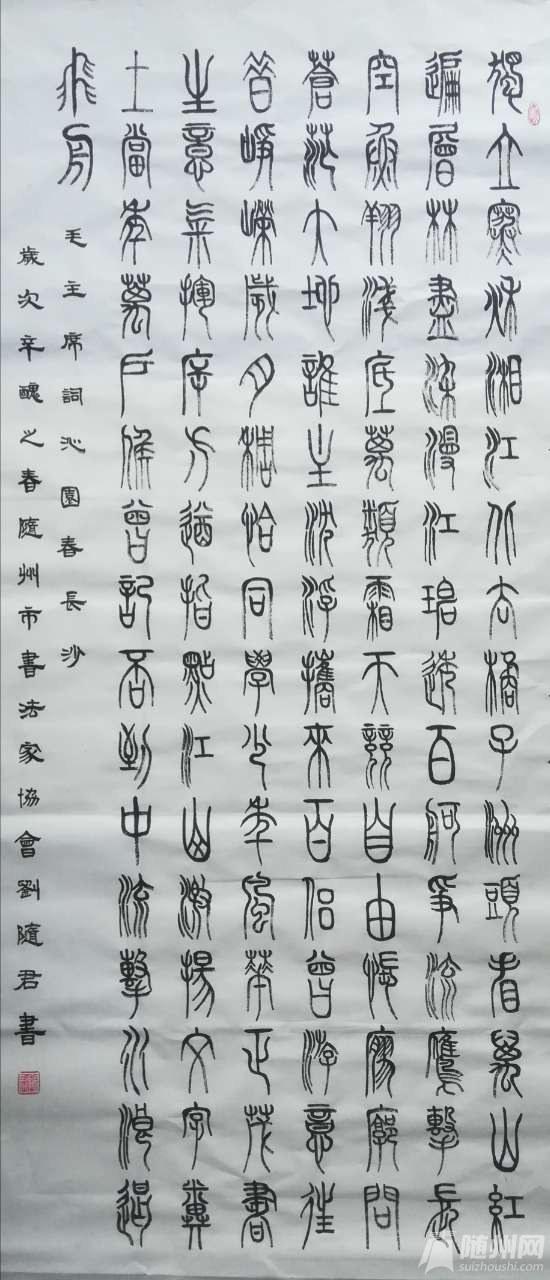 獨立寒秋湘江北去橘子洲頭看萬山紅
遍層林盡染漫江碧透百舸爭流鷹擊長
空魚翔淺底萬類霜天競自由悵寥廓問
蒼茫大地誰主沉浮攜來百侶曾游憶往
昔崢嶸歲月稠恰同學少年風華正茂書
生意氣揮斥方遒指點江山激揚文字糞
土當年萬戶侯曾記否到中流擊水浪遏
飛舟
毛主席詞沁園春長沙
歲次辛醜之春隨州市書法家協會劉隨君書
随州网
suizhoushi.com